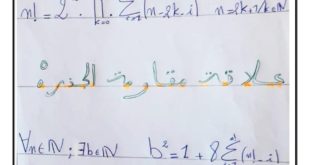 n! = 2 · ∏ k=0 ∑ (n-2k-i) n=2k+1/k∈ℕ
علاقة مقاومة الجذرة
∀n∈ℕ ; ∃b∈ℕ b² = 1 + 8∑(n-i)